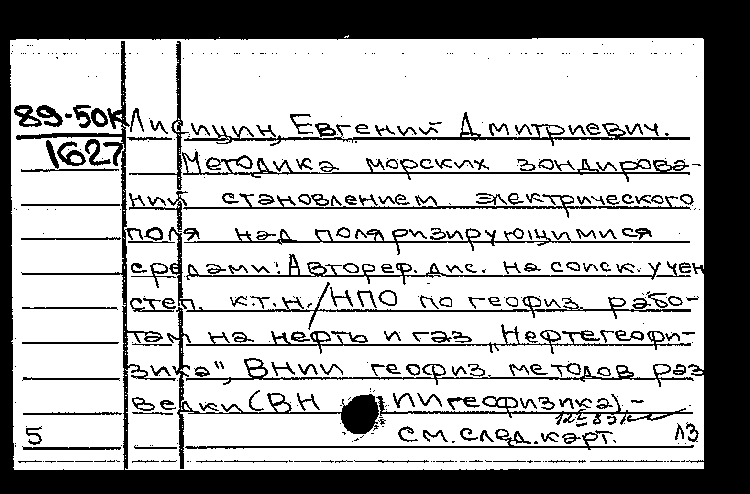 89-50К
1627
Лисицин, Евгений Дмитриевич.
Методика морских зондирова-
ний становлением электрического
поля над поляризирующимися
средами: Автореф. дис. на соиск. учен
степ. к.т.н. / НПО по геофиз. рабо-
там на нефть и газ „Нефтегеофи-
зика", ВНИИ геофиз. методов раз
ведки (ВНИИгеофизика). -
см. след. карт.
5
ЛЗ